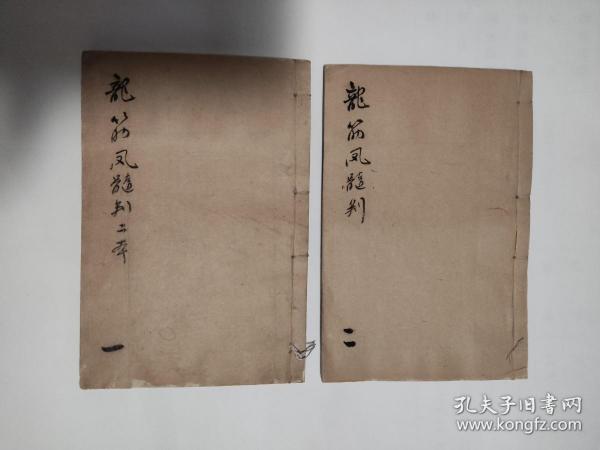 龍筋凤髓判二本
一
龍筋凤髓判
二
孔夫子旧书网
www.kongfz.com